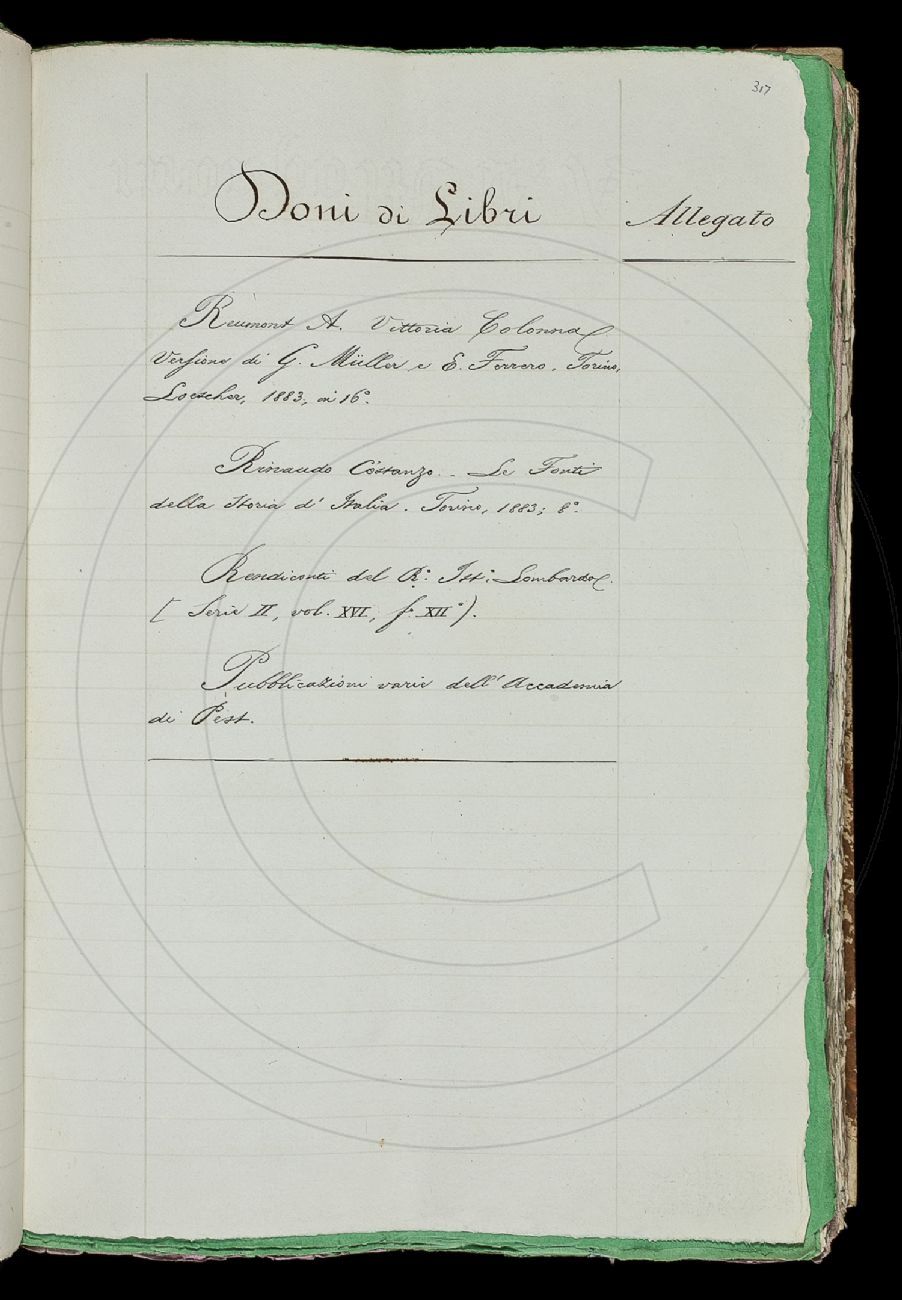 317
Doni di Libri
Allegato
Reumont A. Vittoria Colonna
Versione di G. Müller e E. Ferrero. Torino,
Loescher, 1883, in 16°.
Rinaudo Costanzo - Le Fonti
della Storia d' Italia. Torino, 1883; 8°.
Rendiconti del R.° Ist.° Lombardo.
( Serie II, vol. XVI, f. XII°).
Pubblicazioni varie dell' Accademia
di Pest.